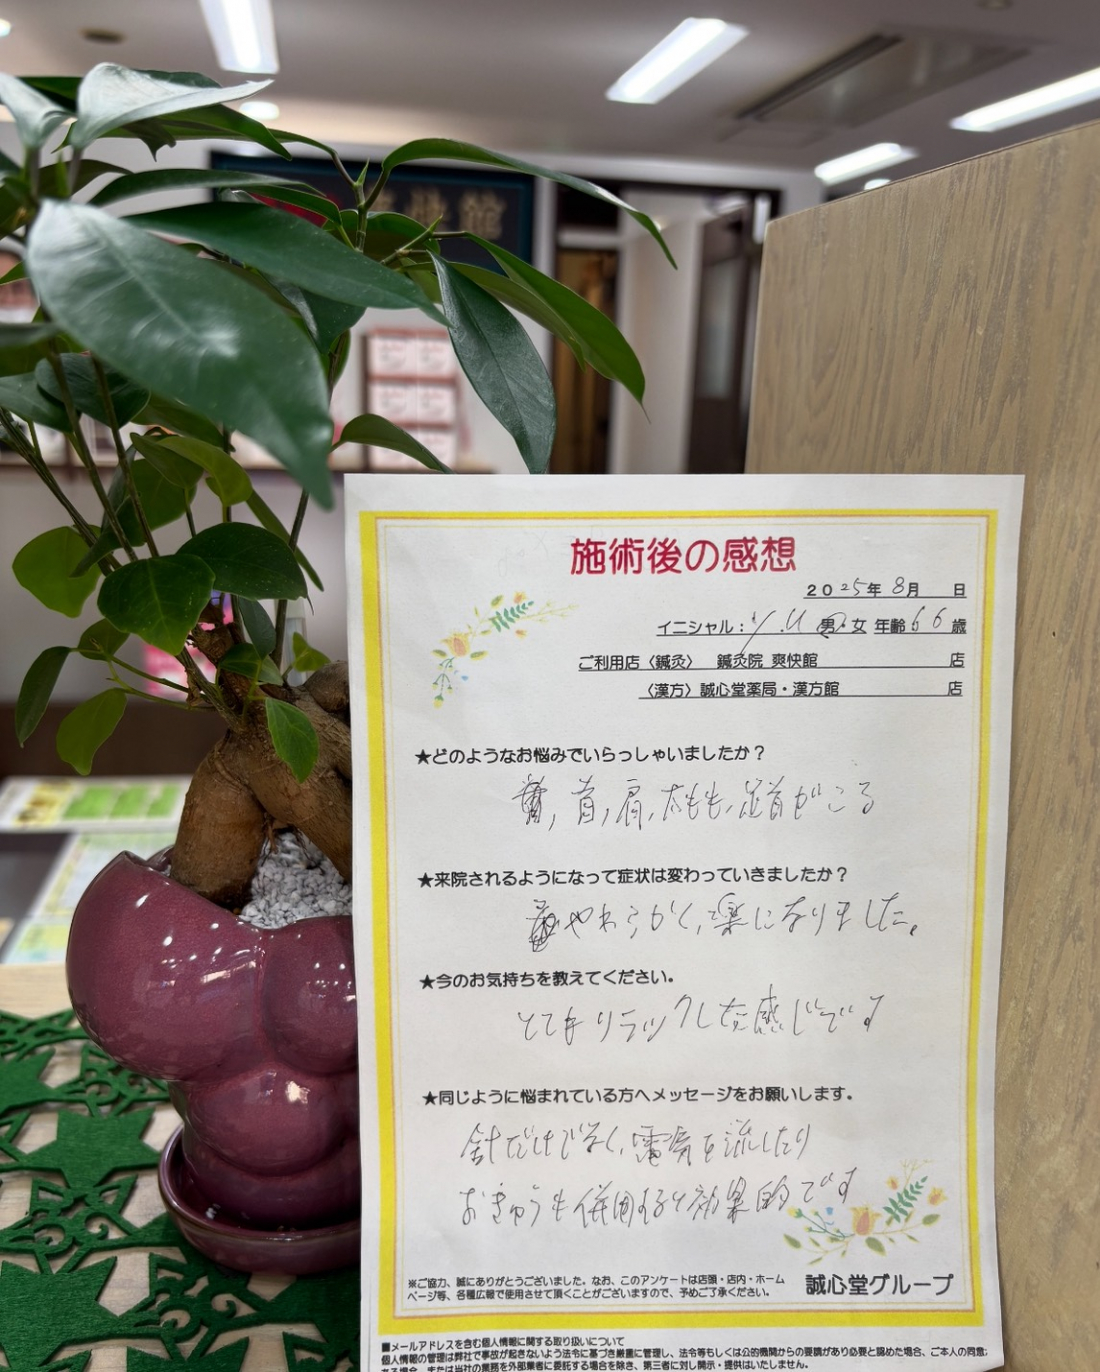 快館
施術後の感想
2025年 8月 日
イニシャル：Y.U 男・女 年齢66歳
ご利用店〈鍼灸〉 鍼灸院 爽快館 店
〈漢方〉誠心堂薬局・漢方館 店
★どのようなお悩みでいらっしゃいましたか？
首，肩，太もも，足首がこる
★来院されるようになって症状は変わっていきましたか？
やわらかく，楽になりました。
★今のお気持ちを教えてください。
とてもリラックスした感じです
★同じように悩まれている方へメッセージをお願いします。
針だけでなく，電気を流したり
おきゅうも併用すると効果的です
※ご協力、誠にありがとうございました。なお、このアンケートは店頭・店内・ホーム
ページ等、各種広報で使用させて頂くことがございますので、予めご了承ください。
誠心堂グループ
■メールアドレスを含む個人情報に関する取り扱いについて
個人情報の管理は弊社で事故が起きないよう法令に基づき厳重に管理し、法令等もしくは公的機関からの要請があり必要と認めた場合、ご本人の同意
ある場合、または当社の業務を外部業者に委託する場合を除き、第三者に対し開示・提供はいたしません。